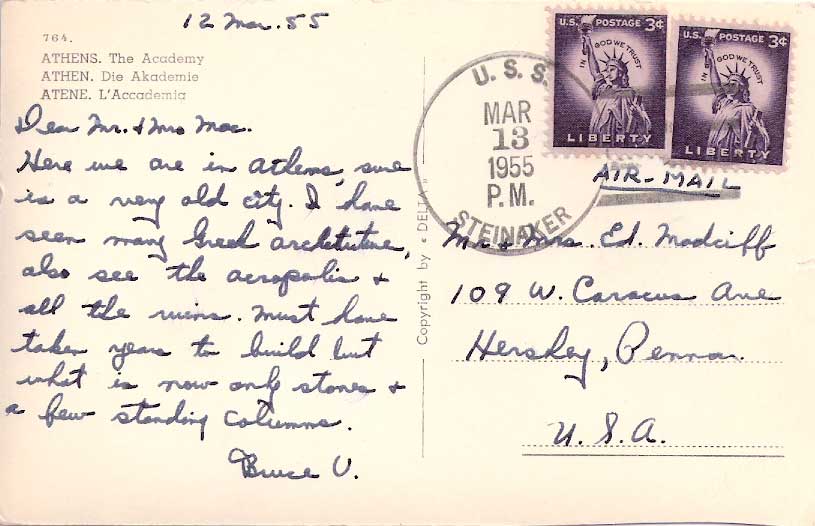 12 Mar. 55
764.
ATHENS. The Academy
ATHEN. Die Akademie
ATENE. L'Accademia
Dear Mr. & Mrs Mac.
Here we are in Athens, sure
is a very old city. I have
seen many Greek archititure,
also see the acropolis &
all the ruins. Must have
taken years to build but
what is now only stones &
a few standing columns.
Bruce V.
Copyright by « DELTA »
U.S.S.
MAR
13
1955
P.M.
STEINAKER
U.S. POSTAGE 3¢
IN GOD WE TRUST
LIBERTY
U.S. POSTAGE 3¢
IN GOD WE TRUST
LIBERTY
AIR-MAIL
Mr & Mrs. Ed.
109 W. Caracus Ave
Hershey, Penna.
U.S.A.